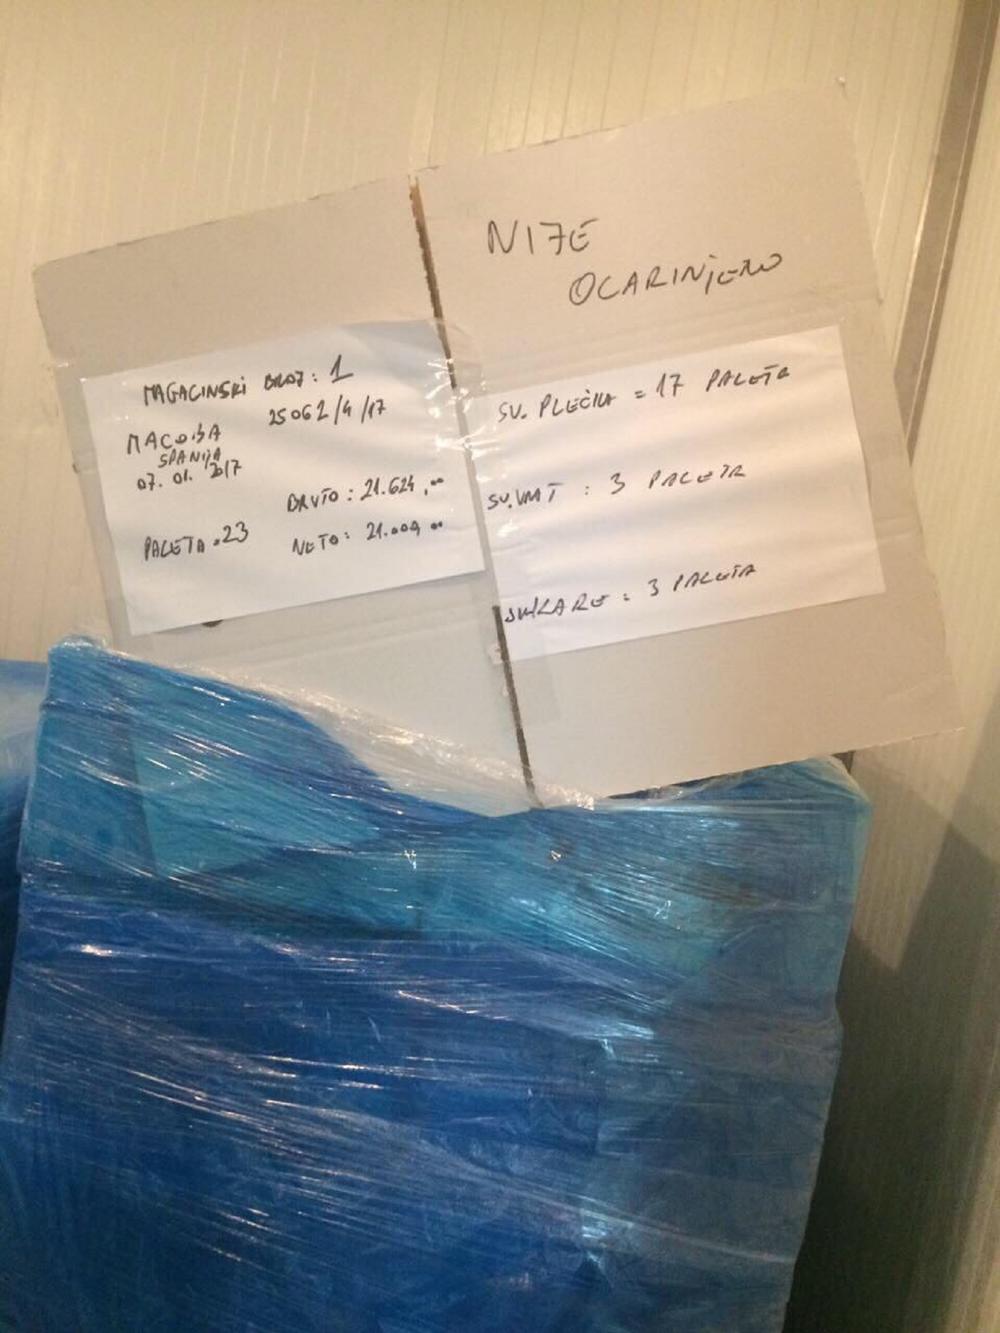 NIJE
OCARINJENO
MAGACINSKI BROJ: 1
25062/4/17
SPANIJA
07. 01. 2017
BRUTO: 21.624,00
PALETA: 23
NETO: 21.009,00
SV. PLEĆKA = 17 PALETA
SV. VRAT : 3 PALETA
SV. KARE : 3 PALETA